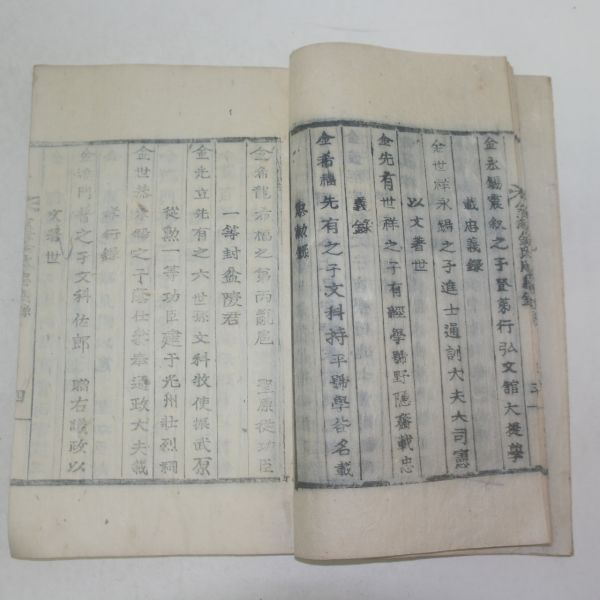 金永錫震叙之子登第行弘文館大提學
金世祥永錫之子進士通訓大夫大司憲
載忠義錄
以文著世
金先有世祥之子有經學號野隱舊載忠
義錄
金希福先有之子文科持平號學谷名載
忠敬錄
金希龍希福之弟丙亂扈 聖原從功臣
一等封盆陵君
金先立先有之六世孫文科牧使振武原
從勲一等功臣建于光州壯烈祠
之子蔭仕參奉通政大夫載
孝行錄
之子文科佐郎 贈右議政以
文著世
四